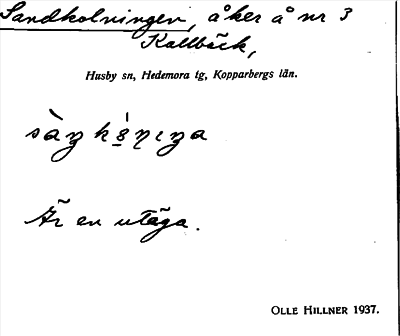 Sandkolningen, åker å nr 3
Kallbäck,
Husby sn, Hedemora tg, Kopparbergs län.
Är en utäga.
OLLE HILLNER 1937.